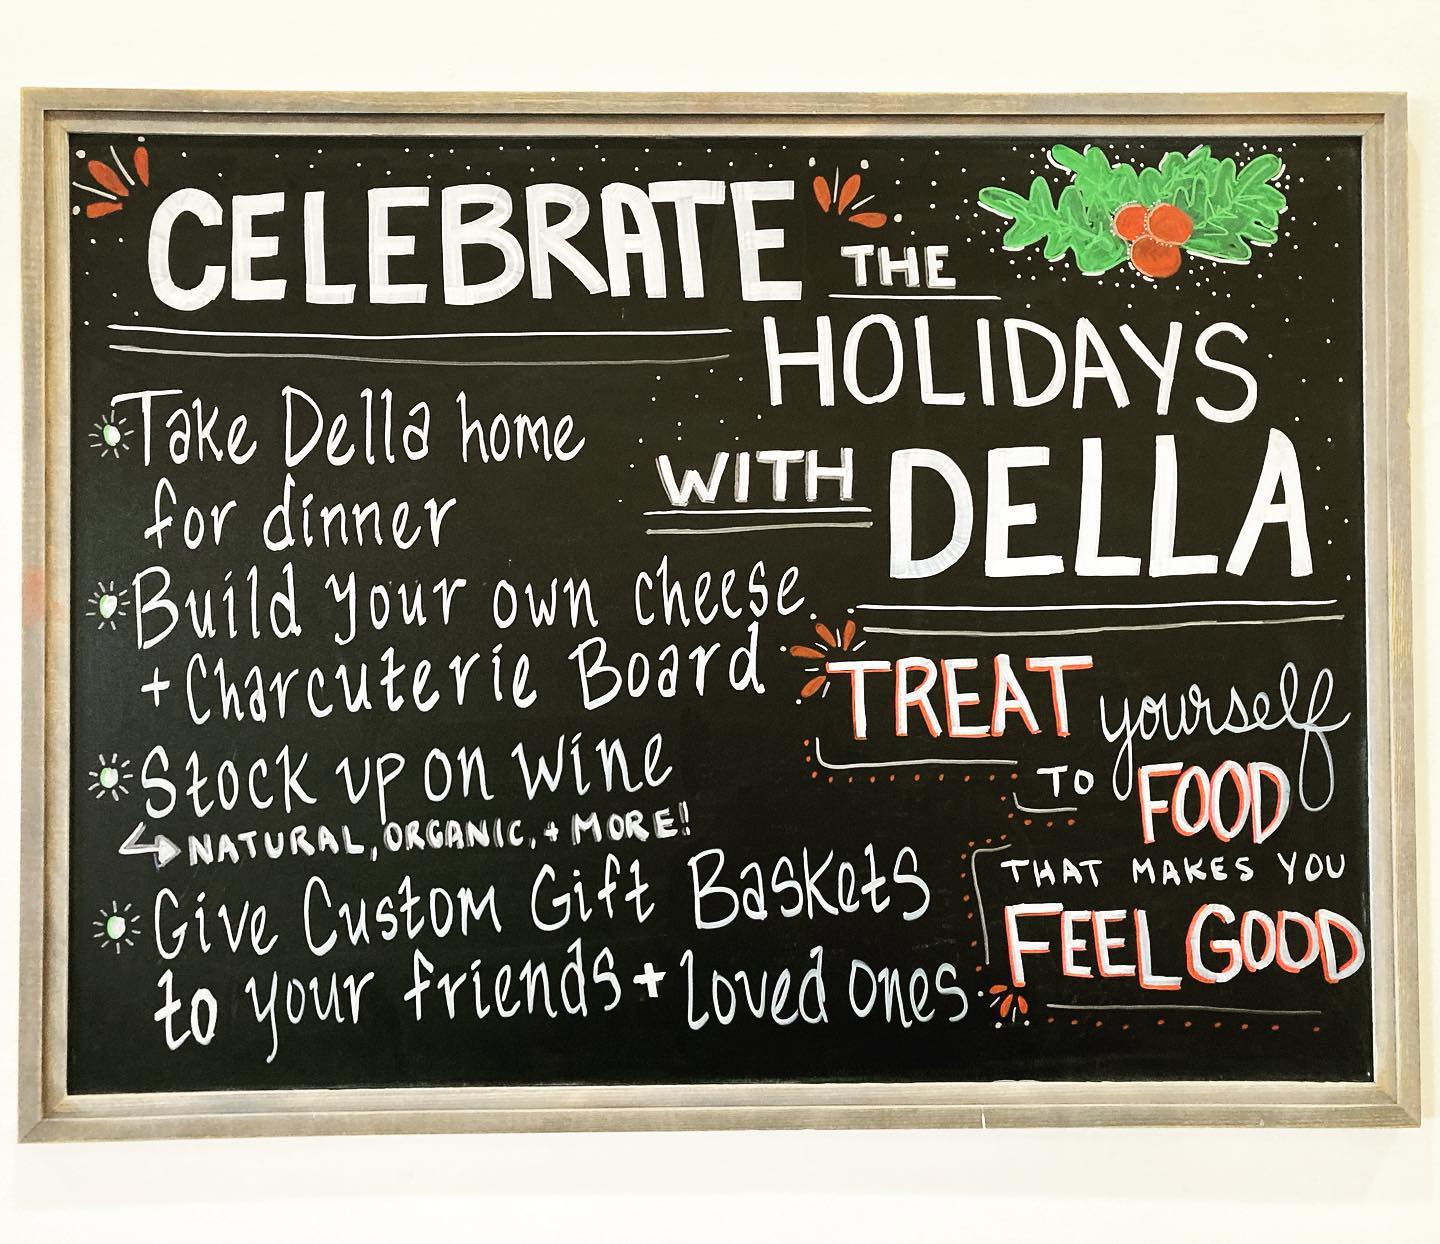 CELEBRATE THE
HOLIDAYS
WITH DELLA
Take Della home
for dinner
Build your own cheese
+ Charcuterie Board
Stock up on wine
NATURAL, ORGANIC, + MORE!
Give Custom Gift Baskets
to your friends + loved ones
TREAT yourself
TO FOOD
THAT MAKES YOU
FEEL GOOD